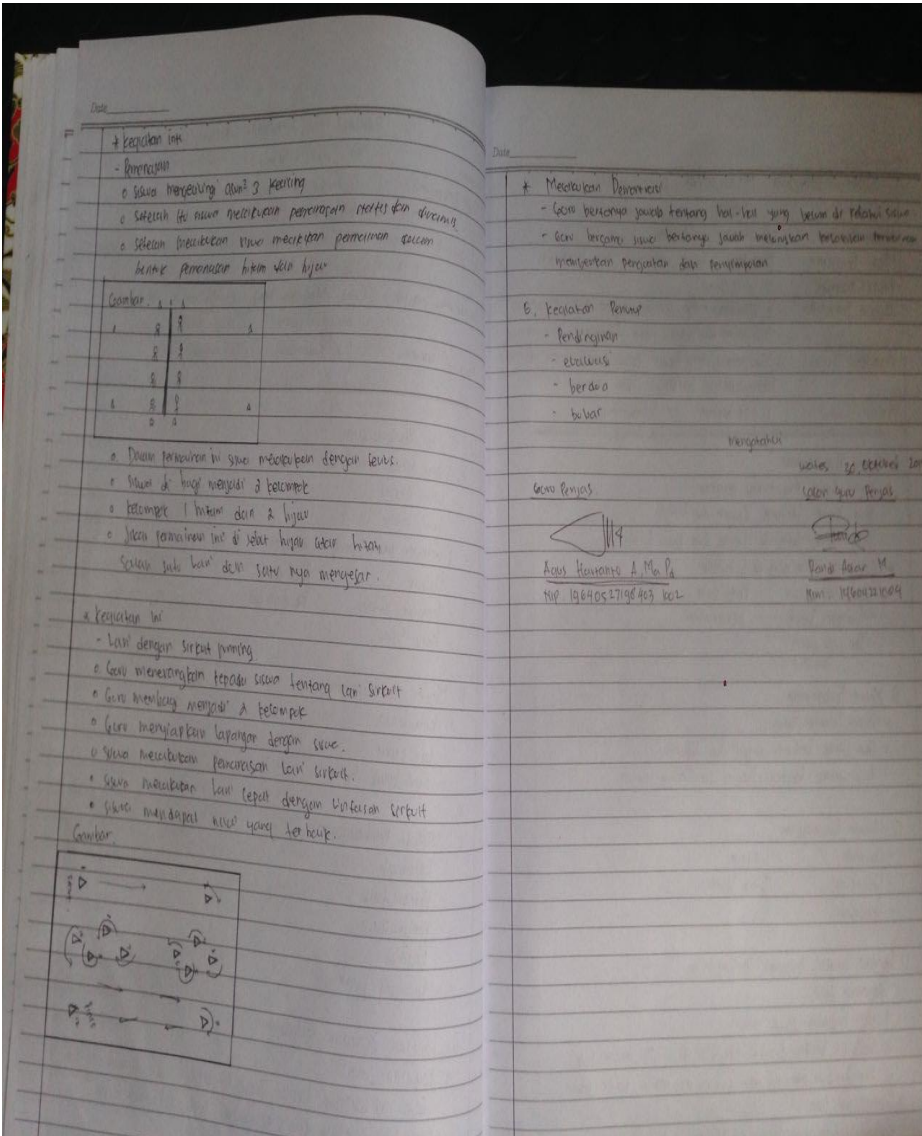 Date
* Kegiatan inti
- Pemanasan
o Siswa mengelilingi alun² 3 keliling
o Setelah itu siswa melakukan pemanasan statis dan dinamis
o Setelah melakukan siswa melakukan permainan dalam
bentuk pemanasan hitam dan hijau
Gambar.
o Dalam permainan ini siswa melakukan dengan serius.
o Siswa di bagi menjadi 2 kelompok
o kelompok 1 hitam dan 2 hijau
o Jikan permainan ini di sebut hijau atau hitam
Salah satu lari dan satu nya mengejar.
* Kegiatan ini
- Lari dengan sirkut running
o Guru menerangkan kepada siswa tentang lari sirkuit
o Guru membagi menjadi 2 kelompok
o Guru menyiapkan lapangan dengan
o Siswa melakukan pemanasan lari sirkuit.
o Siswa melakukan lari cepat dengan lintasan sirkuit
o Siswa mendapat yang terbaik.
Gambar.
Date
* Melakukan
- Guru bertanya jawab tentang hal-hal yang belum di ketahui siswa
- Guru bersama siswa bertanya jawab meluruskan kesalahan
memberikan penguatan dan penyimpulan
6. Kegiatan Penutup
- Pendinginan
- evaluasi
- berdoa
- bubar
Mengetahui
Wates 30 Oktober
Guru Penjas
Calon guru Penjas
Agus Hartanto A, Ma Pd
NIP
M.
NIM.